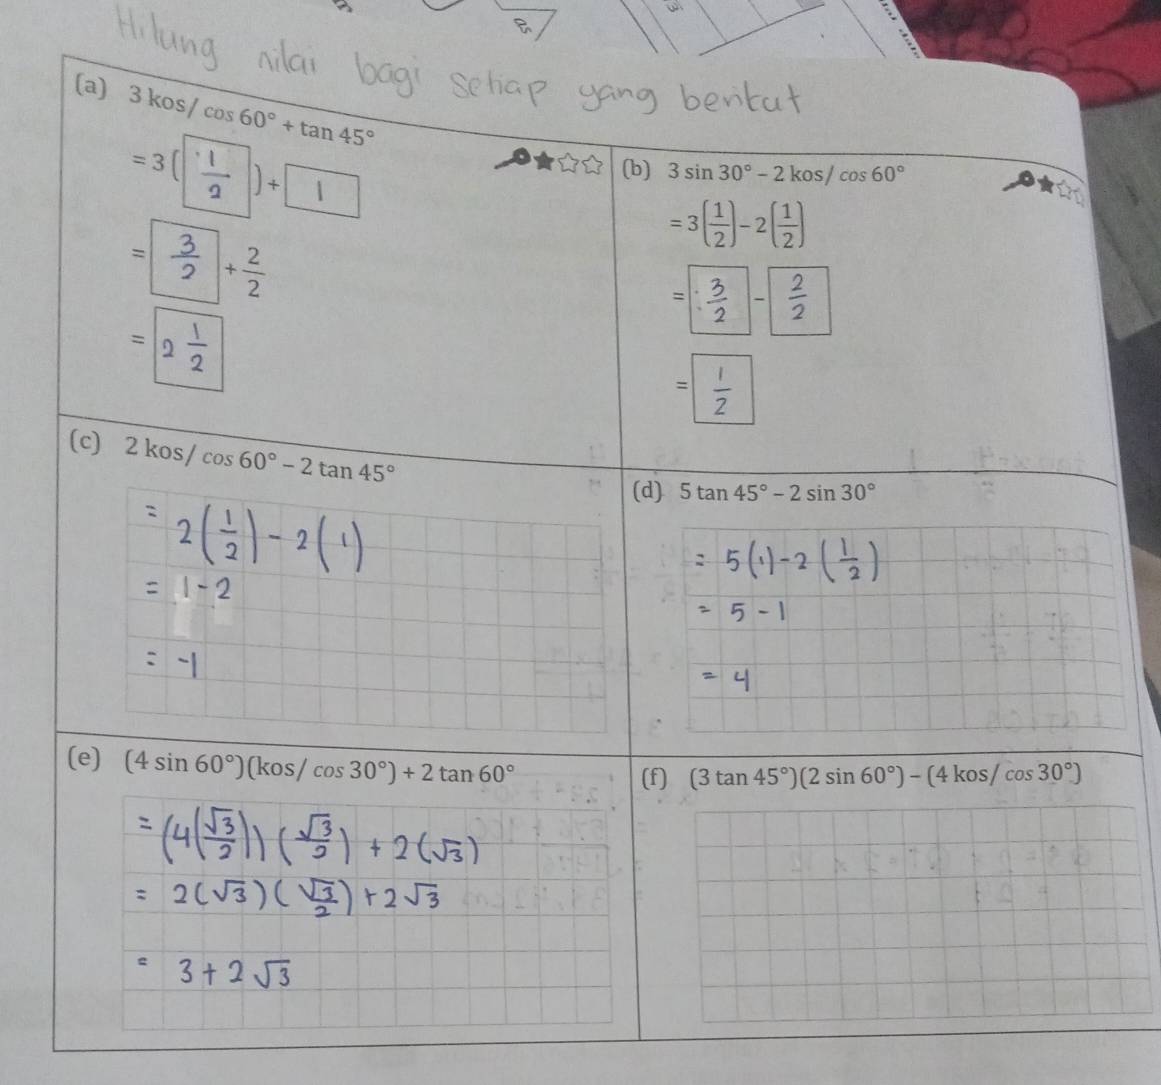 Hitung nilai bagi setiap yang berikut
(a) 3 kos/ cos 60° + tan 45°
= 3 ( 1/2 ) + 1
= 3/2 + 2/2
= 2 1/2
(b) 3 sin 30° − 2 kos/ cos 60°
= 3(1/2) − 2(1/2)
= 3/2 − 2/2
= 1/2
(c) 2 kos/ cos 60° − 2 tan 45°
= 2(1/2) − 2(1)
= 1 − 2
= −1
(d) 5 tan 45° − 2 sin 30°
= 5(1) − 2(1/2)
= 5 − 1
= 4
(e) (4 sin 60°)(kos/ cos 30°) + 2 tan 60°
= (4(√3/2))(√3/2) + 2(√3)
= 2(√3)(√3/2) + 2√3
= 3 + 2√3
(f) (3 tan 45°)(2 sin 60°) − (4 kos/ cos 30°)